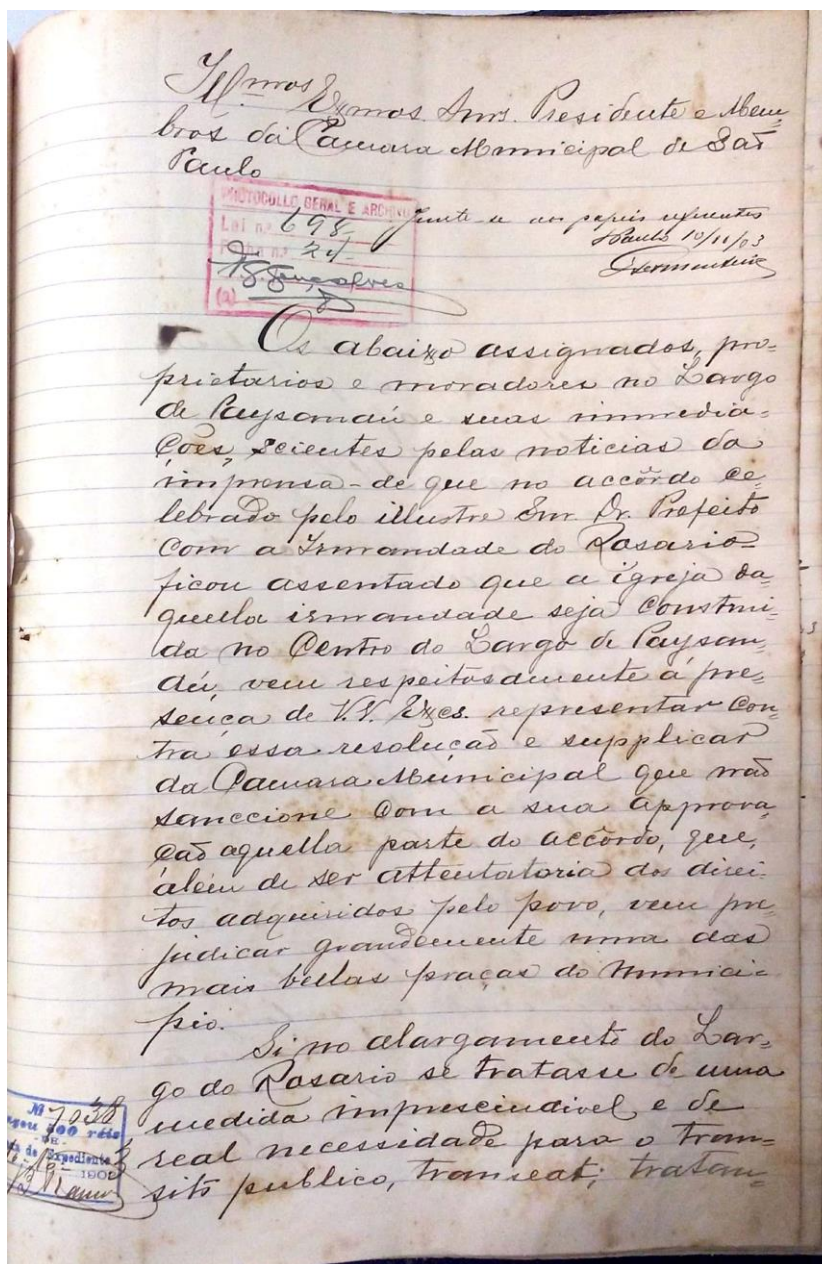 Ill.mos Exmos. Snrs. Presidente e Mem-
bros da Camara Municipal de São
Paulo
PROTOCOLLO GERAL E ARCHIVO
Lei n.º 698
n.º 24
Gonçalves
(a)
Junte-se aos papeis referentes
S Paulo 10/11/03
Os abaixo assignados, pro-
prietarios e moradores no Largo
de Paysandú e suas immedia-
ções, scientes pelas noticias da
imprensa - de que no accôrdo ce-
lebrado pelo illustre Snr. Dr. Prefeito
com a Irmandade do Rosario -
ficou assentado que a igreja da-
quella irmandade seja construi-
da no Centro do Largo de Paysan-
dú, vem respeitosamente á pre-
sença de V.V. Excs. representar con-
tra essa resolução e supplicar
da Camara Municipal que não
sanccione com a sua approva-
ção aquella parte do accôrdo, que,
álem de ser attentatoria dos direi-
tos adquiridos pelo povo, vem pre-
judicar grandemente uma das
mais bellas praças do Munici-
pio.
Si no alargamento do Lar-
go do Rosario se tratasse de uma
medida imprescindivel e de
real necessidade para o tran-
sito publico, transeat; tratan-
Nº 7038
pagou 300 réis
DE
de Expediente
190